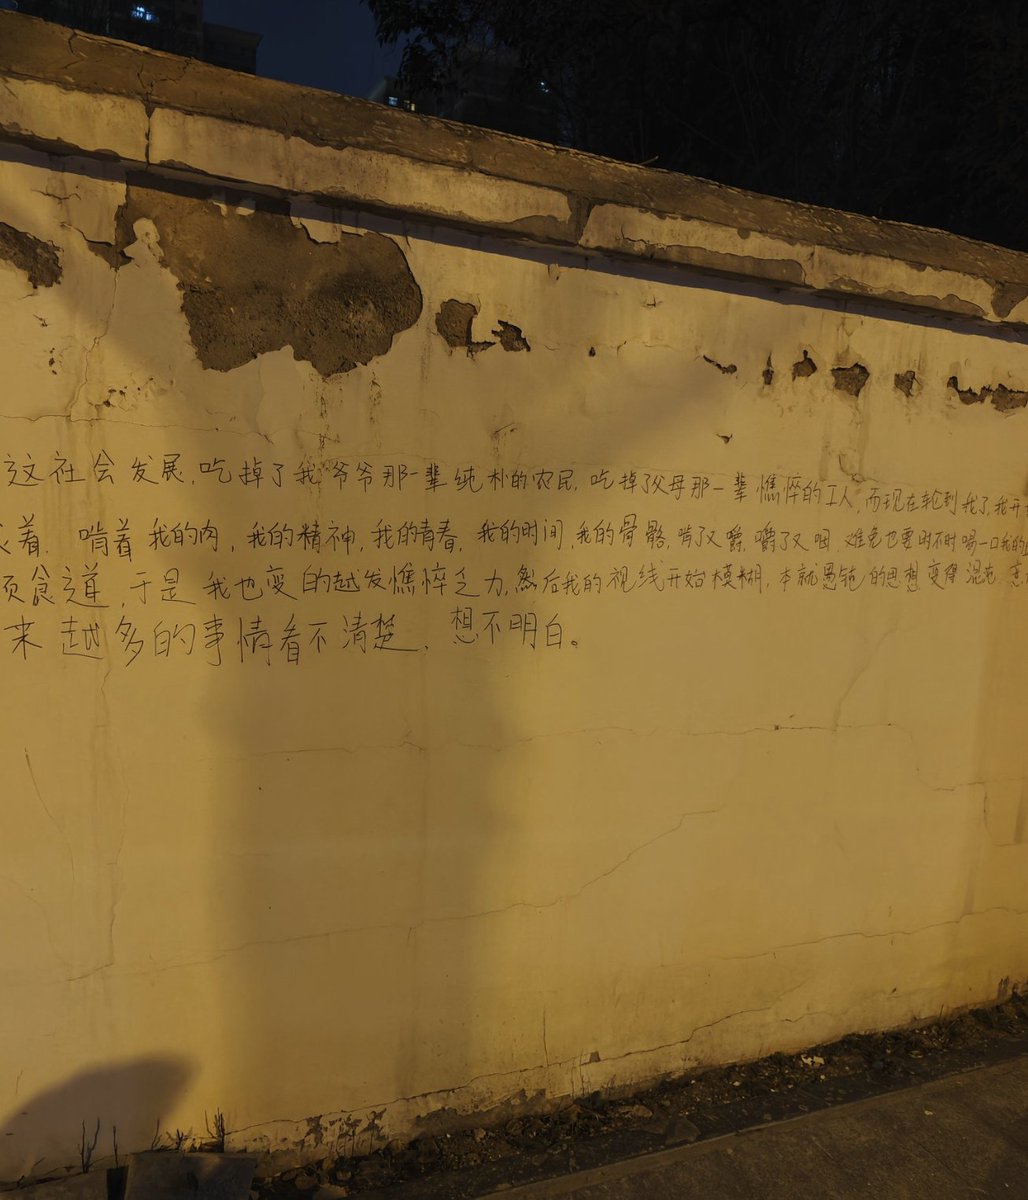 这社会发展,吃掉了我爷爷那一辈纯朴的农民,吃掉了父母那一辈憔悴的工人,而现在轮到我了,我开
着.啃着我的肉,我的精神,我的青春,我的时间,我的骨骼,啃了又嚼,嚼了又咽.难免也要时不时喝一口我的
食道,于是我也变的越发憔悴乏力,然后我的视线开始模糊,本就愚钝的思想变得混沌
来越多的事情看不清楚,想不明白。